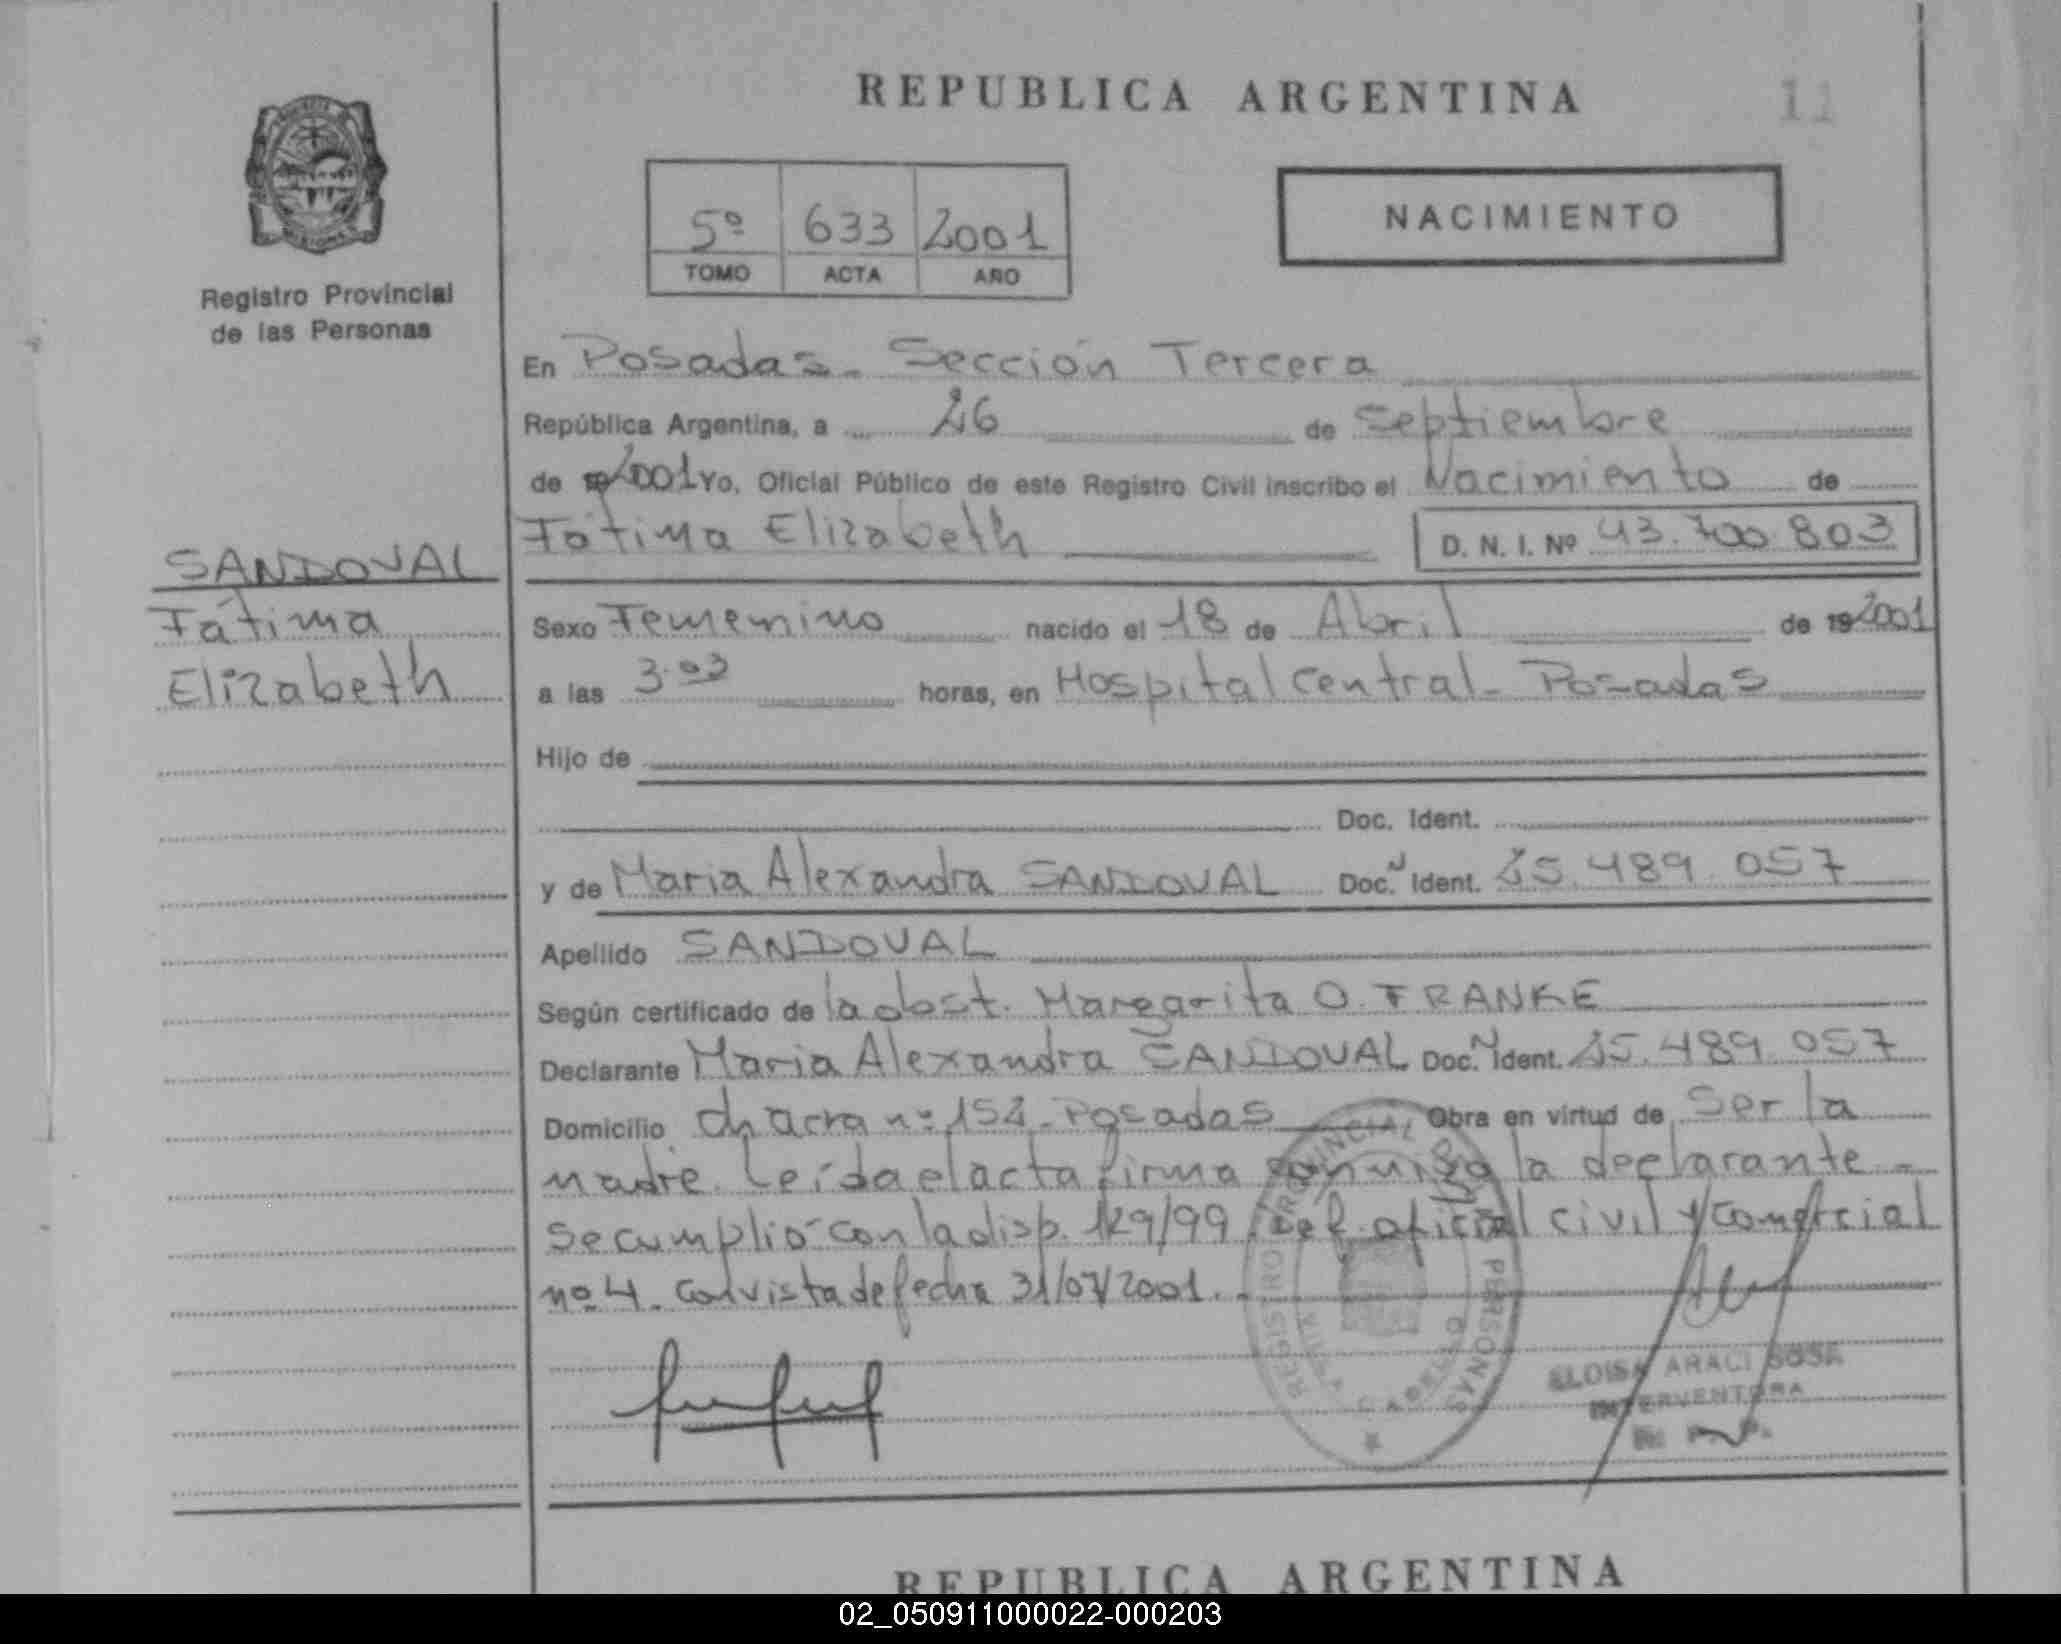 REPUBLICA ARGENTINA
11
Registro Provincial
de las Personas
5º 633 2001
TOMO ACTA AÑO
NACIMIENTO
En Posadas. Sección Tercera
República Argentina, a 26 de Septiembre
de 192001 Yo, Oficial Público de este Registro Civil inscribo el Nacimiento de
Fátima Elizabeth D. N. I. Nº 43.700.803
SANDOVAL
Fátima
Elizabeth
Sexo Femenino nacido el 18 de Abril de 192001
a las 3.03 horas, en Hospital Central - Posadas
Hijo de
Doc. Ident.
y de Maria Alexandra SANDOVAL Doc. N Ident. 25.489.057
Apellido SANDOVAL
Según certificado de la obst. Margarita O. FRANKE
Declarante Maria Alexandra SANDOVAL Doc. N Ident. 25.489.057
Domicilio chacra nº 152 - Posadas Obra en virtud de Ser la
madre. Leída el acta firma conmigo la declarante -
Se cumplió con la disp. 129/99 Def. oficial civil y comercial
nº 4. con vista de fecha 31/07/2001.
REGISTRO PROVINCIAL DE LAS PERSONAS
VILLA CABELLO
ELOISA ARACI SOSA
INTERVENTORA
R. P. P.
REPUBLICA ARGENTINA
02_050911000022-000203